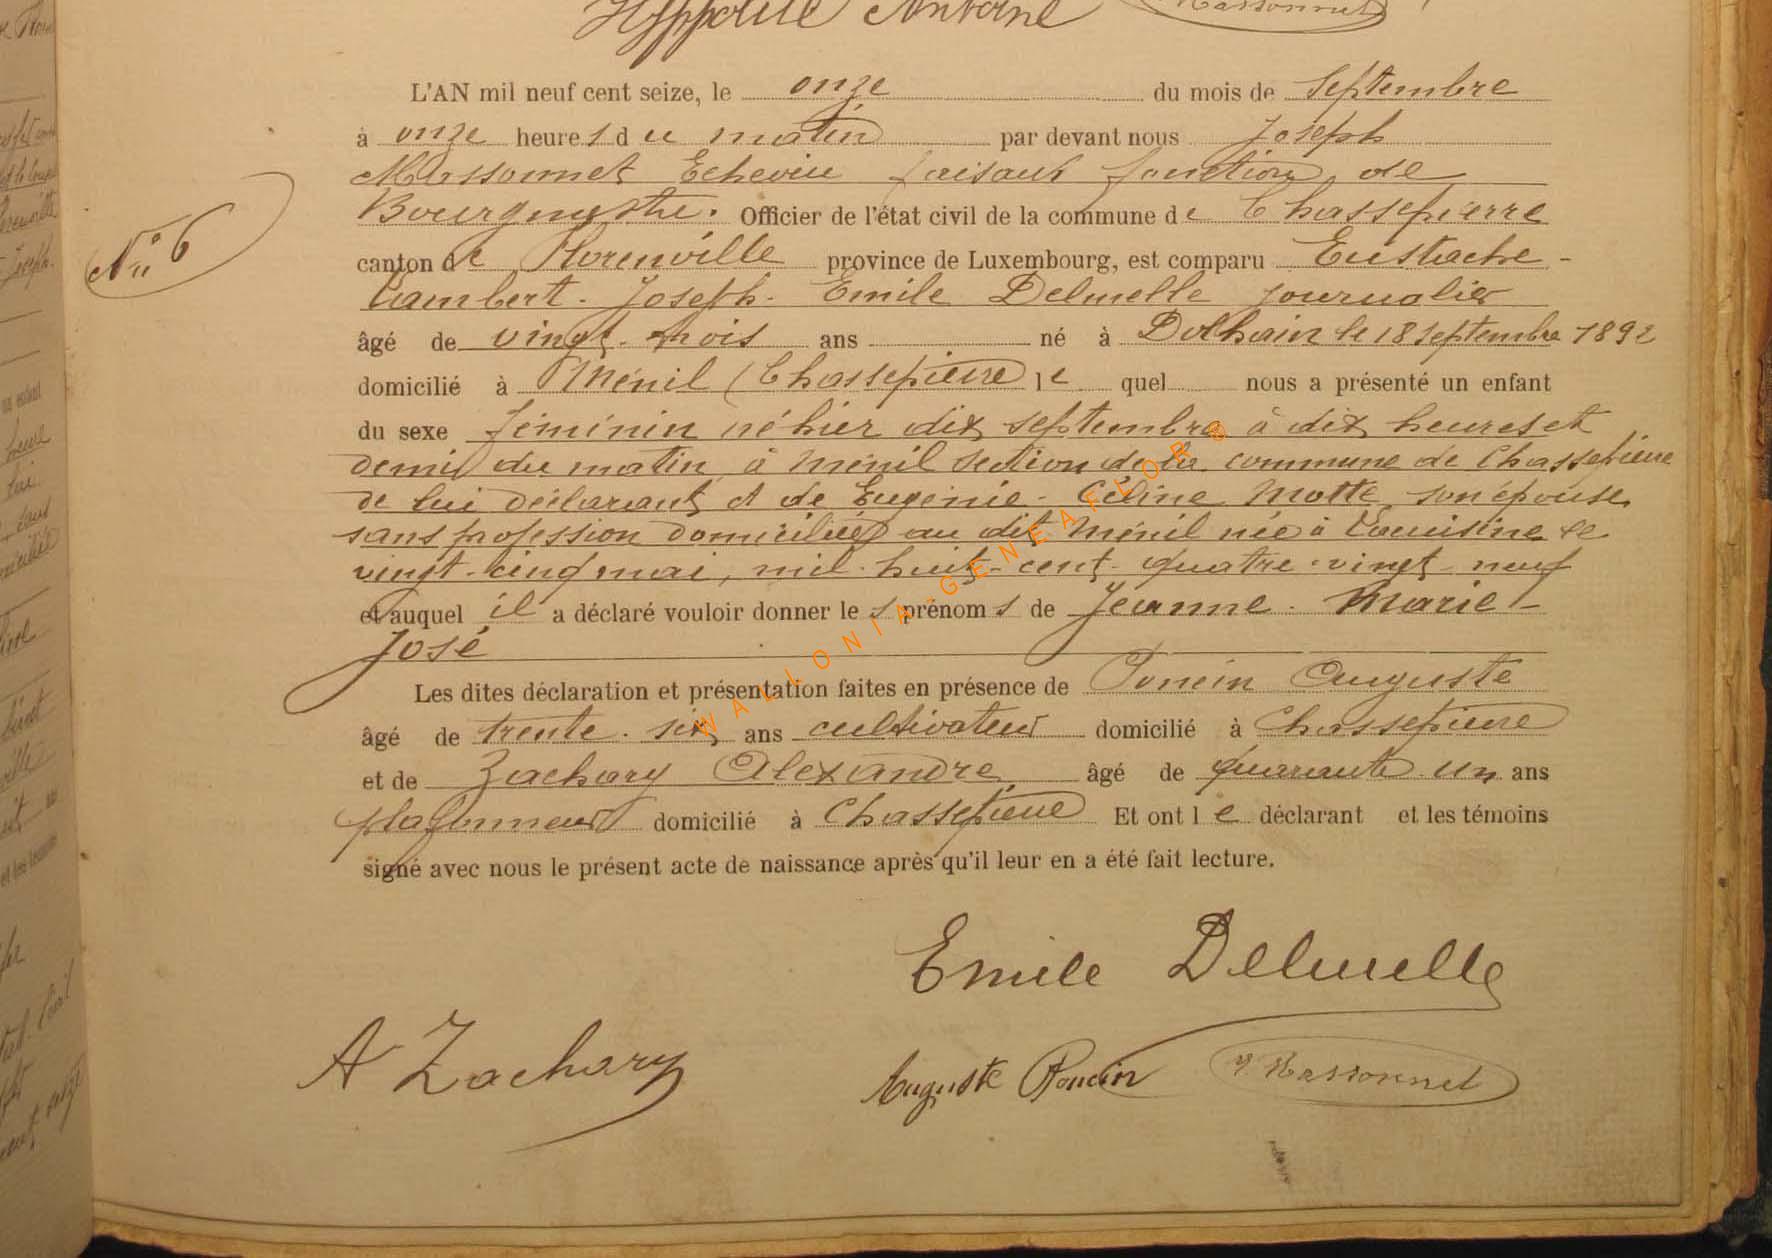 Hyppolite Antoine Massonnet
L'AN mil neuf cent seize, le onze du mois de Septembre
à onze heures du matin par devant nous Joseph
Massonnet Echevin faisant fonction de
Bourgmestre. Officier de l'état civil de la commune de Chassepierre
N° 6
canton de Florenville province de Luxembourg, est comparu Eustache-
Lambert-Joseph-Emile Delmelle journalier
âgé de vingt-trois ans né à Dolhain le 18 septembre 1892
domicilié à Ménil (Chassepierre) lequel nous a présenté un enfant
du sexe féminin né hier dix septembre à dix heures et
demie du matin à Ménil section de la commune de Chassepierre
de lui déclarant et de Eugénie-Céline Motte son épouse
sans profession domiciliée au dit Ménil née à Lacuisine le
vingt-cinq mai, mil-huit-cent-quatre-vingt-neuf
et auquel il a déclaré vouloir donner les prénoms de Jeanne-Marie-
José
Les dites déclaration et présentation faites en présence de Poncin Auguste
âgé de trente-six ans cultivateur domicilié à Chassepierre
et de Zachary Alexandre âgé de quarante-un ans
plafonneur domicilié à Chassepierre Et ont le déclarant et les témoins
signé avec nous le présent acte de naissance après qu'il leur en a été fait lecture.
Emile Delmelle
A Zachary
Auguste Poncin J Massonnet
WALLONIA-GENEAFLOR ®